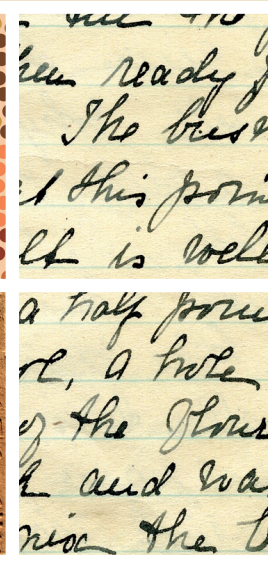 the
hen ready f
The bust
t this poin
lt is well
a half poun
ol, a hole
of the flour
k and wa
mix the b